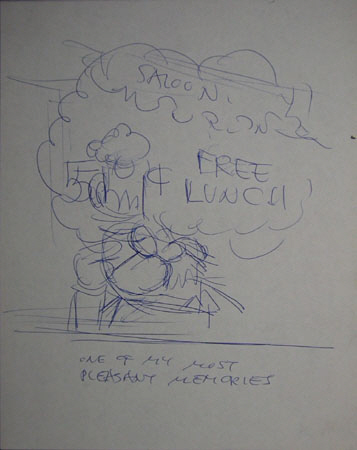 SALOON
5¢
FREE
LUNCH
ONE OF MY MOST
PLEASANT MEMORIES